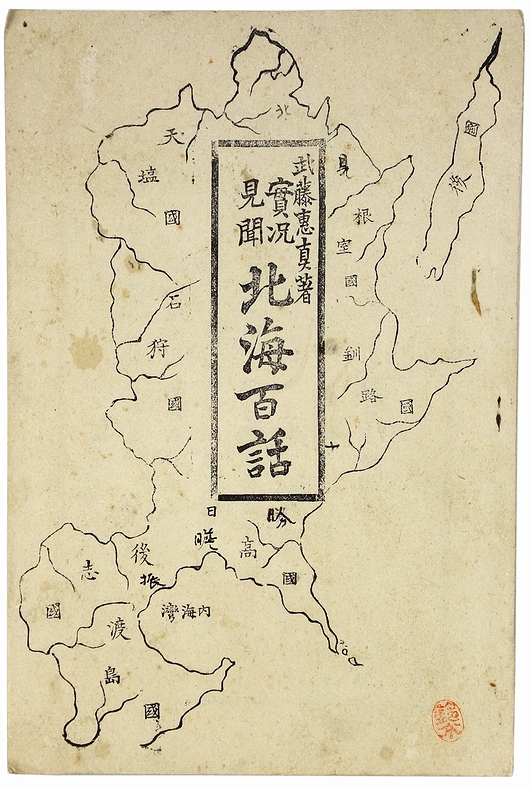 武藤惠真著
實況
見聞
北海百話
北
見
天
塩
國
根
室
國
石
狩
國
釧
路
國
十
勝
日
高
國
膽
振
後
志
國
内海灣
渡
島
國